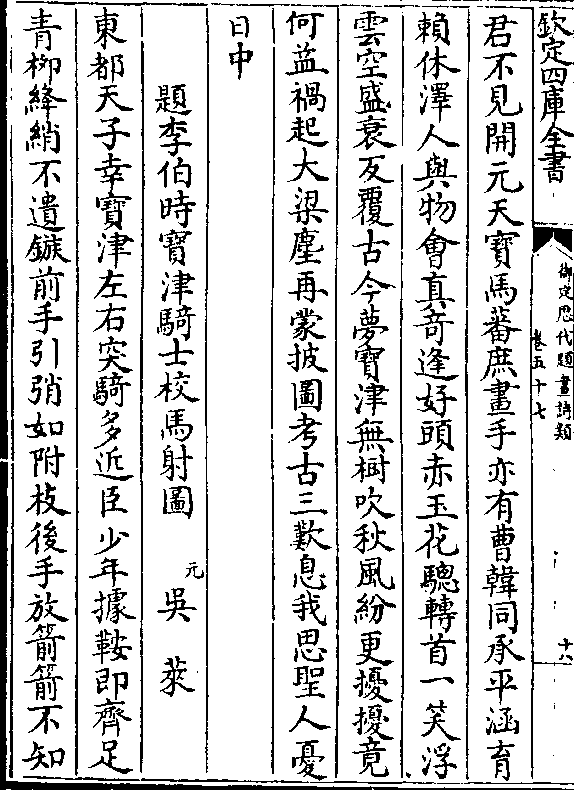 欽定四庫全書
御定歷代題畫詩類
卷五十七
十八
君不見開元天寳馬蕃庶畫手亦有曹韓同承平涵育
賴休澤人與物會真竒逢好頭赤玉花驄轉首一笑浮
雲空盛衰反覆古今夢寶津無樹吹秋風紛更擾擾竟
何益禍起大梁塵再蒙披圖考古三歎息我思聖人憂
日中
題李伯時寶津騎士校馬射圖
元 吳萊
東都天子幸寶津左右突騎多近臣少年據鞍即齊足
青柳絳綃不遺鏃前手引弰如附枝後手放箭箭不知